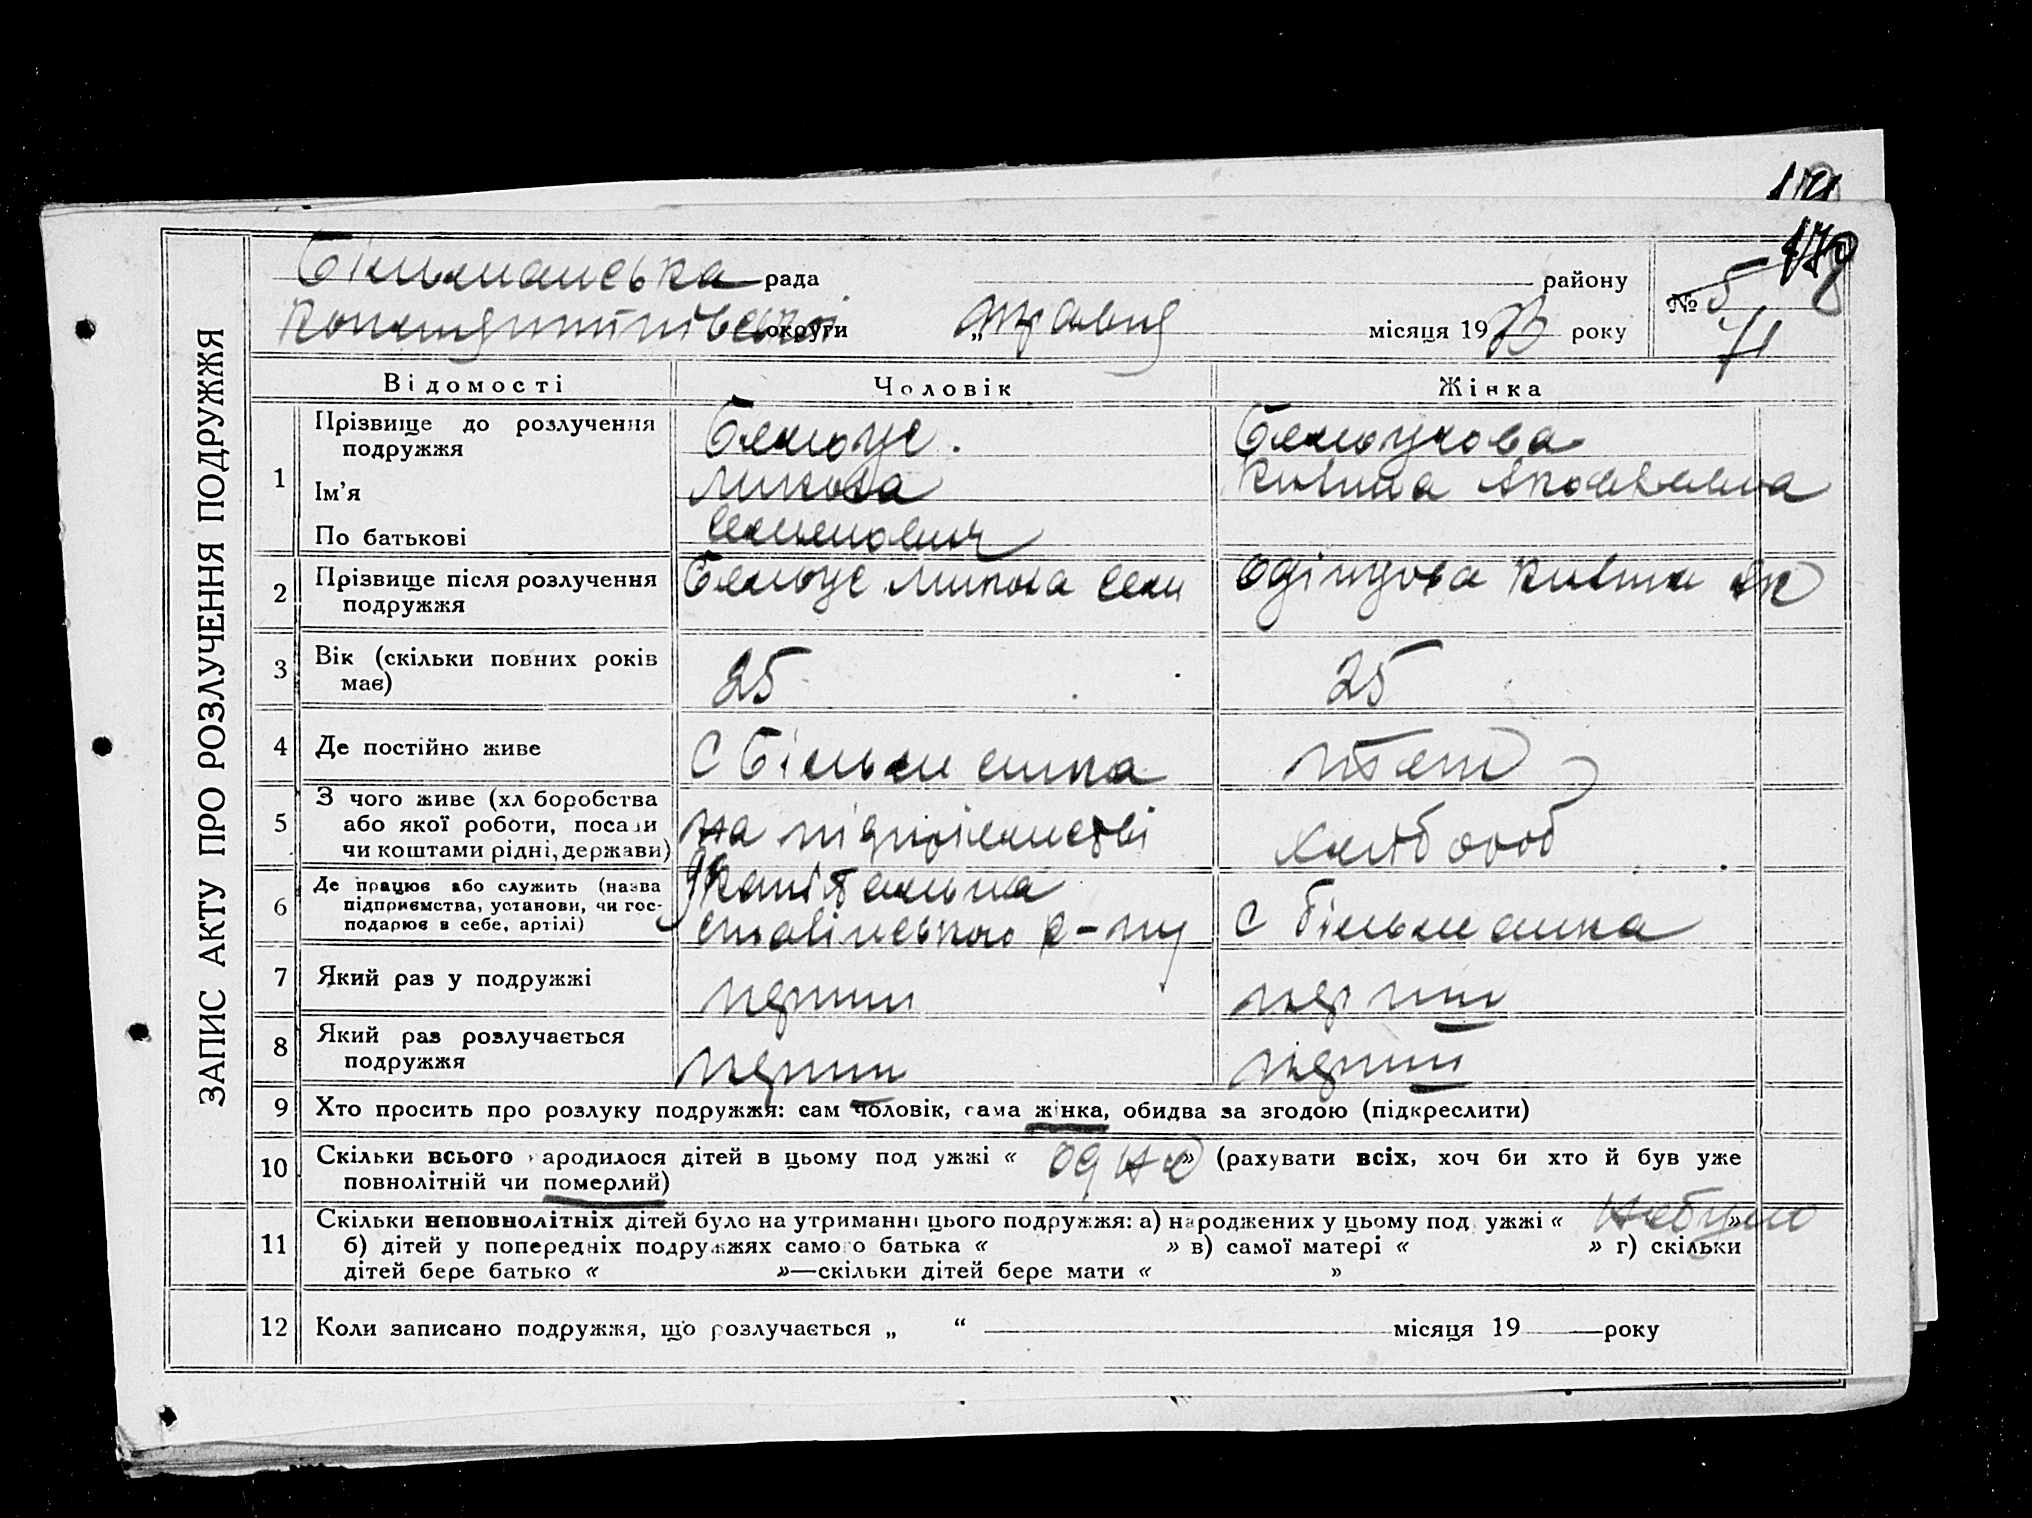 ЗАПИС АКТУ ПРО РОЗЛУЧЕННЯ ПОДРУЖЖЯ
рада району
округи „травня місяця 1933 року
№ 5
71
Відомості Чоловік Жінка
1 Прізвище до розлучення подружжя Бєлоус. Бєлоусова
Ім'я Микола
По батькові Семенович
2 Прізвище після розлучення подружжя Бєлоус Микола Сем Одінцова
3 Вік (скільки повних років має) 25 25
4 Де постійно живе С Більманка
5 З чого живе (хлі боробства або якої роботи, посади чи коштами рідні, держави) на підприємстві хлібороб
6 Де працює або служить (назва підприємства, установи, чи господарює в себе, артілі) Сталінського р-ну С Більманка
7 Який раз у подружжі перший перший
8 Який раз розлучається подружжя перший перший
9 Хто просить про розлуку подружжя: сам чоловік, сама жінка, обидва за згодою (підкреслити)
10 Скільки всього народилося дітей в цьому подружжі « одно » (рахувати всіх, хоч би хто й був уже
повнолітній чи померлий)
11 Скільки неповнолітніх дітей було на утриманні цього подружжя: а) народжених у цьому подружжі « небуло »
б) дітей у попередніх подружжях самого батька « » в) самої матері « » г) скільки
дітей бере батько « »—скільки дітей бере мати « »
12 Коли записано подружжя, що розлучається „ “ місяця 19 року